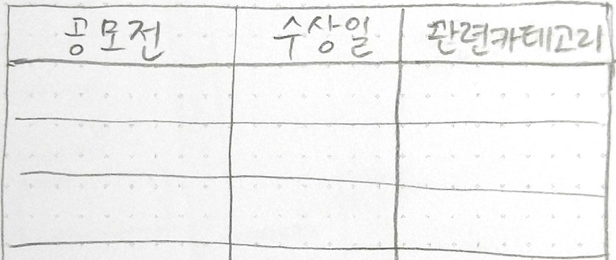 공모전 수상일 관련카테고리